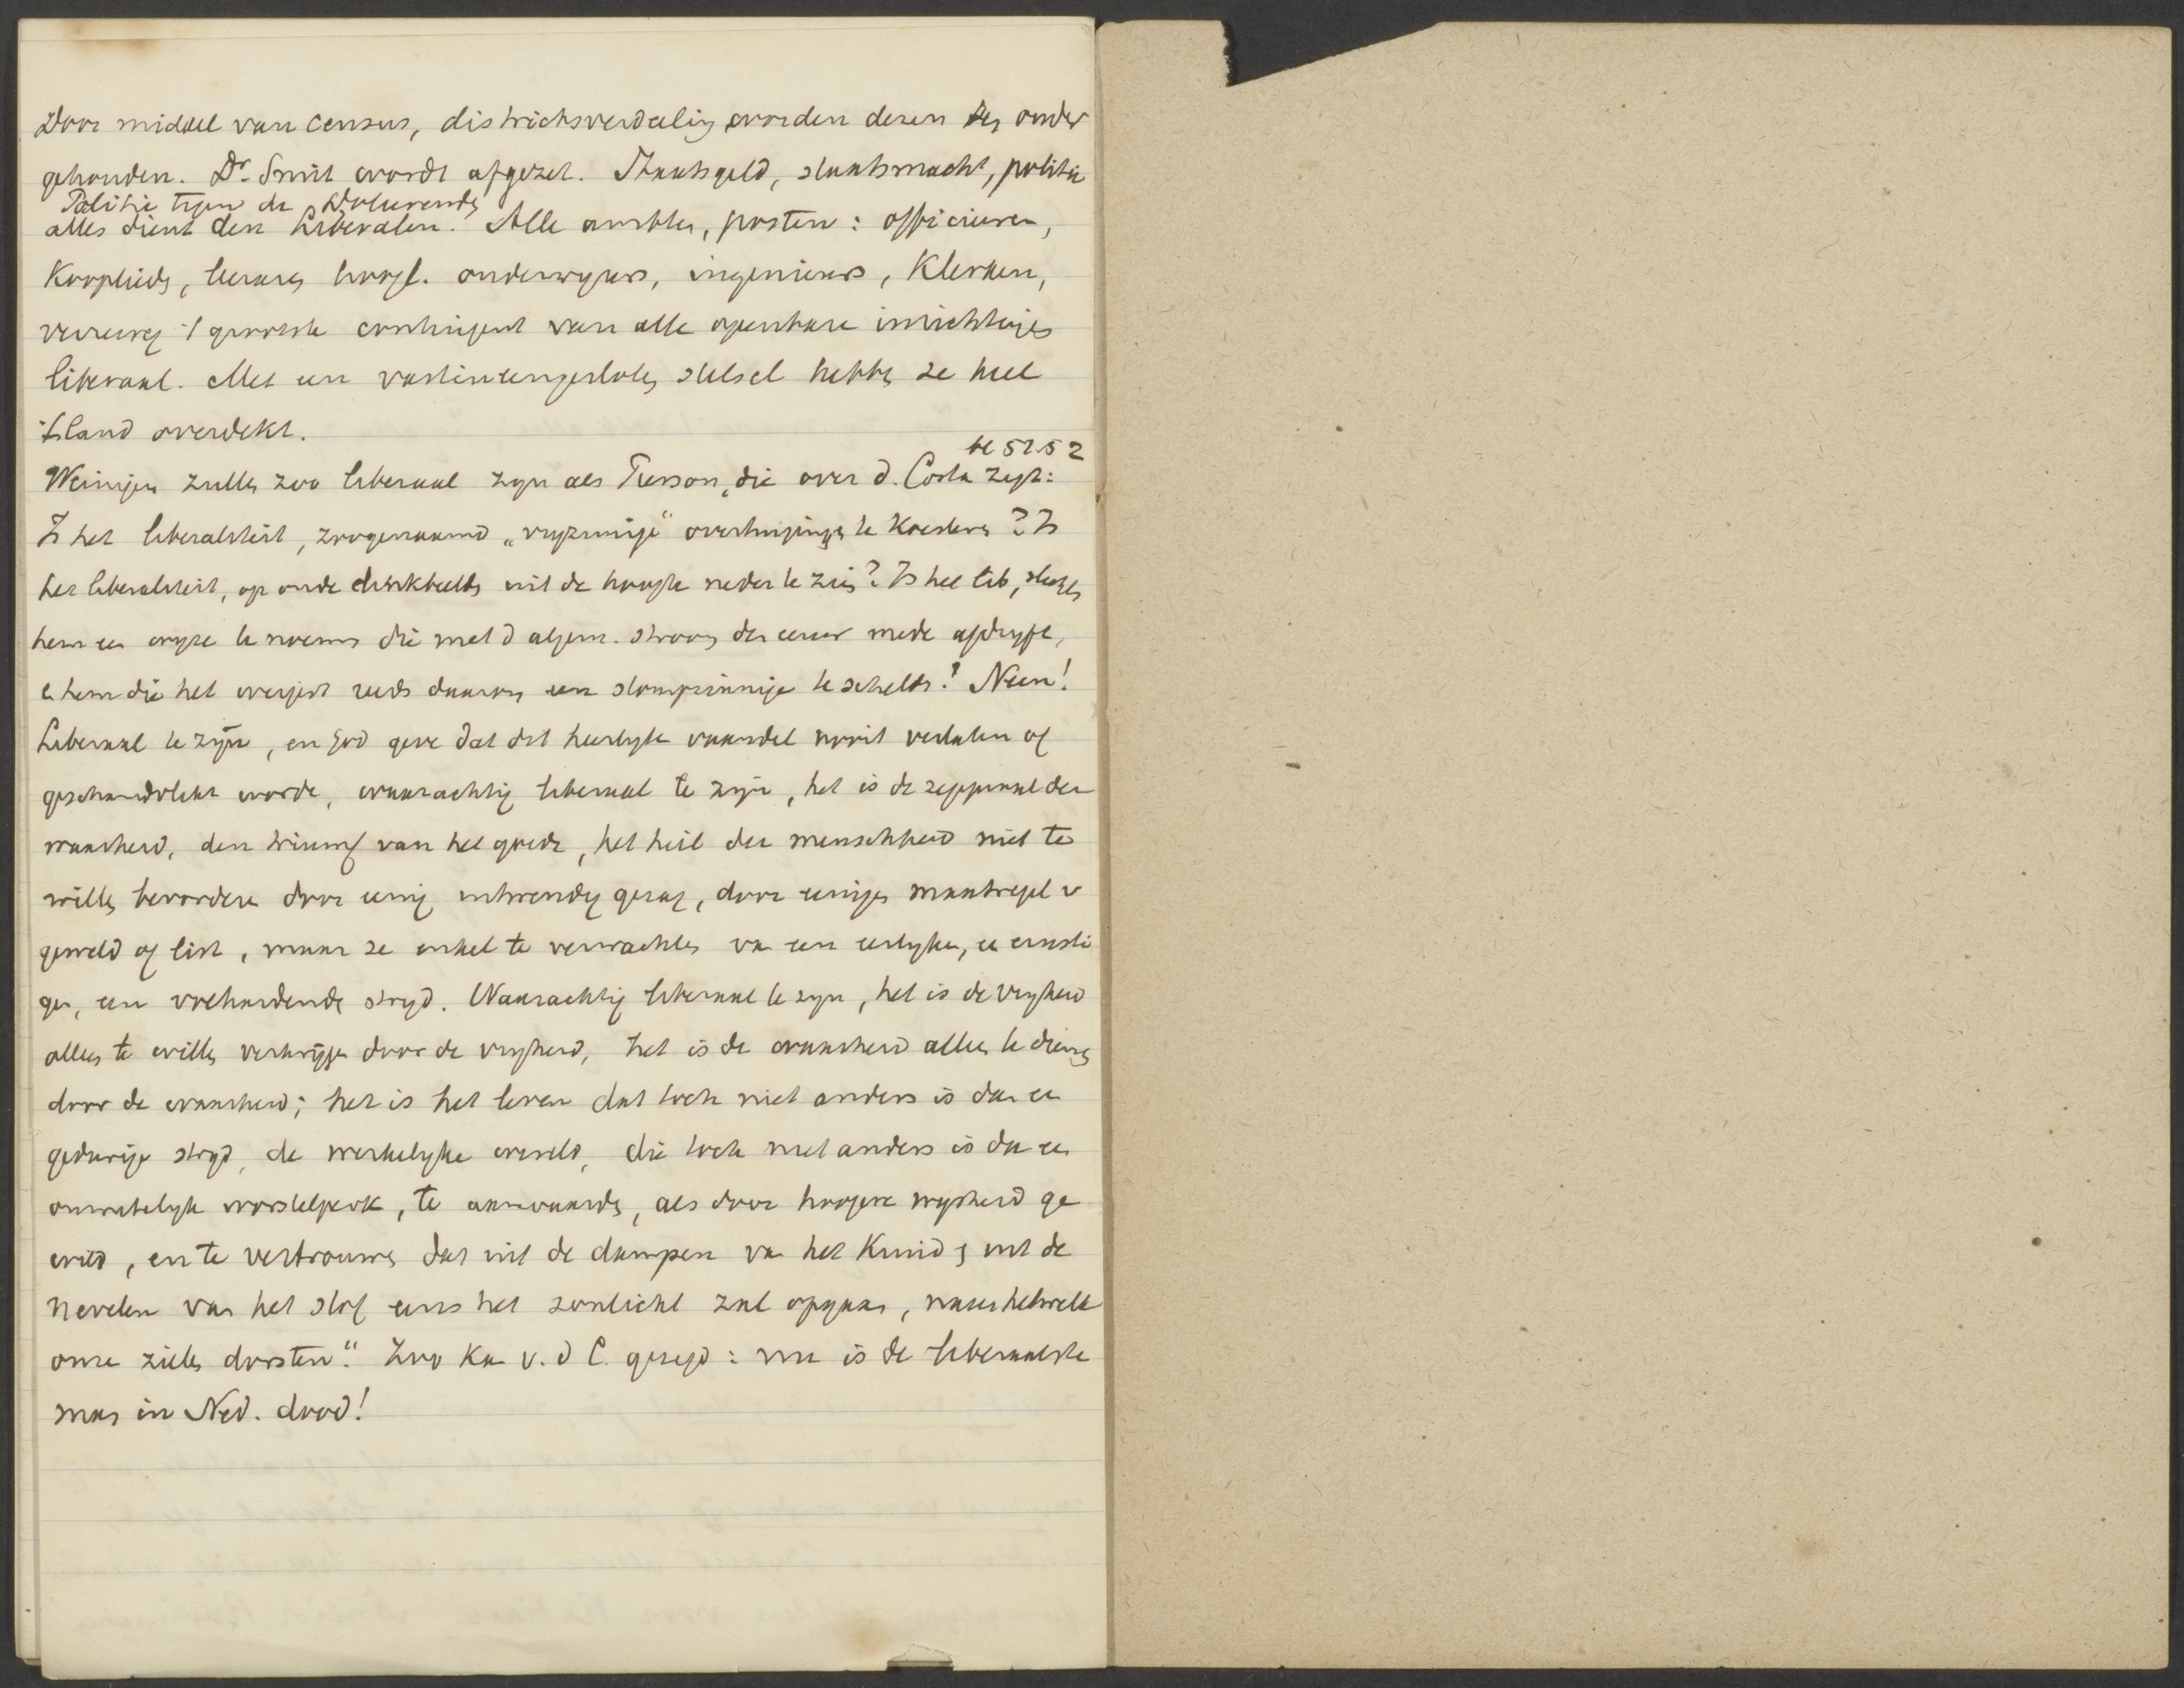 Door middel van census, districtsverdeeling worden dezen er onder
gehouden. Dr. Smit wordt afgezet. Staatsgeld, staatsmacht, politie
Politie tegen de Doleerende
alles dient den Liberalen. Alle ambten, posten: officieren,
Kooplieden, leeraren hoogl. onderwyzers, ingenieurs, Klerken,
verreweg 't grootste contingent van alle openbare inrichtingen
liberaal. Met een vastineengesloten stelsel hebben ze heel
't land overdekt.
bl 51.52
Weinigen zullen zoo liberaal zyn als Pierson, die over d. Costa zegt:
Is het liberaliteit, zoogenaamd „vryzinnige" overtuigingen te Koesteren? Is
het liberaliteit, op oude denkbeelden uit de hoogte neder te zien? Is het lib, slechts
hem een wyze te noemen die met d algem. stroom der eeuw mede afdryft,
en hem die het weigert reeds daarom een stompzinnige te schelden? Neen!
Liberaal te zyn, en God geve dat dit heerlyke vaandel nooit verlaten of
geschandvlekt worde, waarachtig liberaal te zyn, het is de zegepraal der
waarheid, den triumf van het goede, het heil der menschheid niet te
willen bevorderen door eenig uitwendig gezag, door eenigen maatregel v
geweld of list, maar ze enkel te verwachten van een eerlyken, een ernsti
gen, een volhardenden stryd. Waarachtig liberaal te zyn, het is de vryheid
alleen te willen verkrijgen door de vryheid, het is de waarheid alleen te dienen
door de waarheid; het is het leven dat toch niet anders is dan een
gedurige stryd, de werkelyke wereld, die toch niet anders is dan een
onmetelyk worstelperk, te aanvaarden, als door hoogere wysheid ge
wild, en te vertrouwen dat uit de dampen van het Kruid en uit de
nevelen van het stof eens het zonlicht zal opgaan, naar hetwelk
onze zielen dorsten." Zoo Kan v. d C. gezegd: nu is de liberaalste
man in Ned. dood!